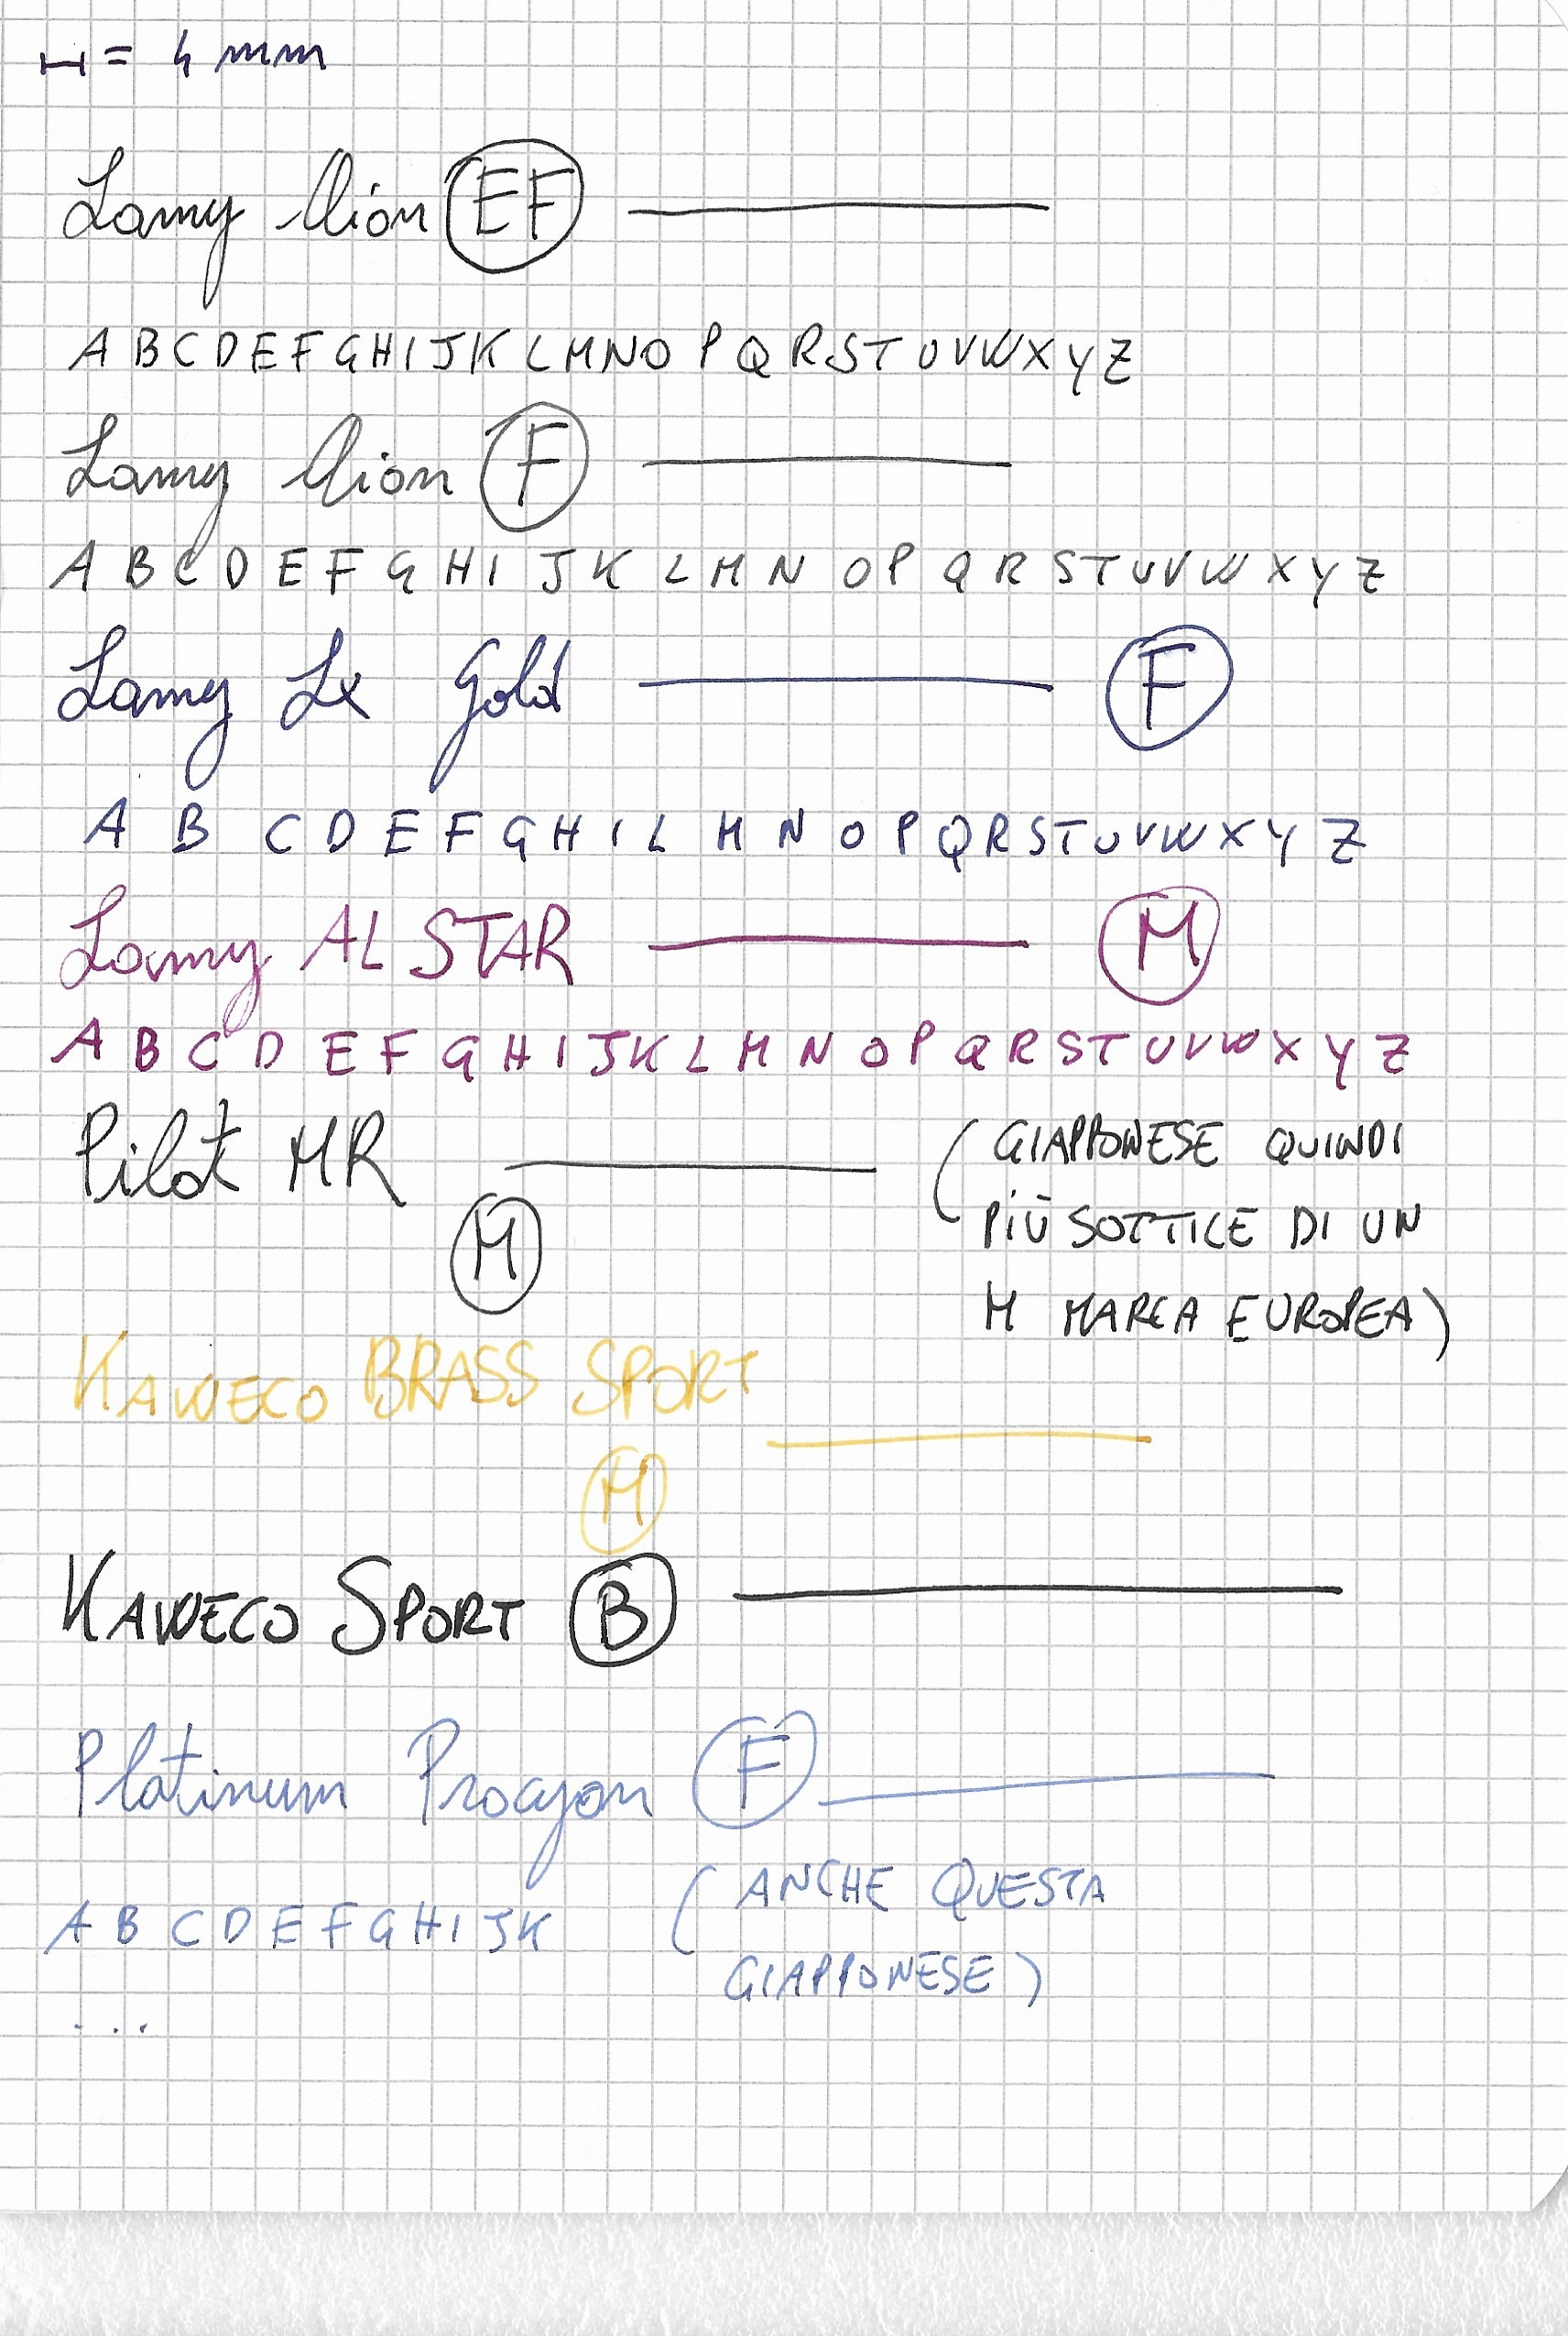 = 4 mm
Lamy Aion EF
A B C D E F G H I J K L M N O P Q R S T U V W X Y Z
Lamy Aion F
A B C D E F G H I J K L M N O P Q R S T U V W X Y Z
Lamy Lx Gold F
A B C D E F G H I L M N O P Q R S T U V W X Y Z
Lamy AL STAR M
A B C D E F G H I J K L M N O P Q R S T U V W X Y Z
Pilot MR
M
(GIAPPONESE QUINDI
PIÙ SOTTILE DI UN
M MARCA EUROPEA)
KAWECO BRASS SPORT
M
KAWECO SPORT B
Platinum Procyon F
A B C D E F G H I J K
...
(ANCHE QUESTA
GIAPPONESE)